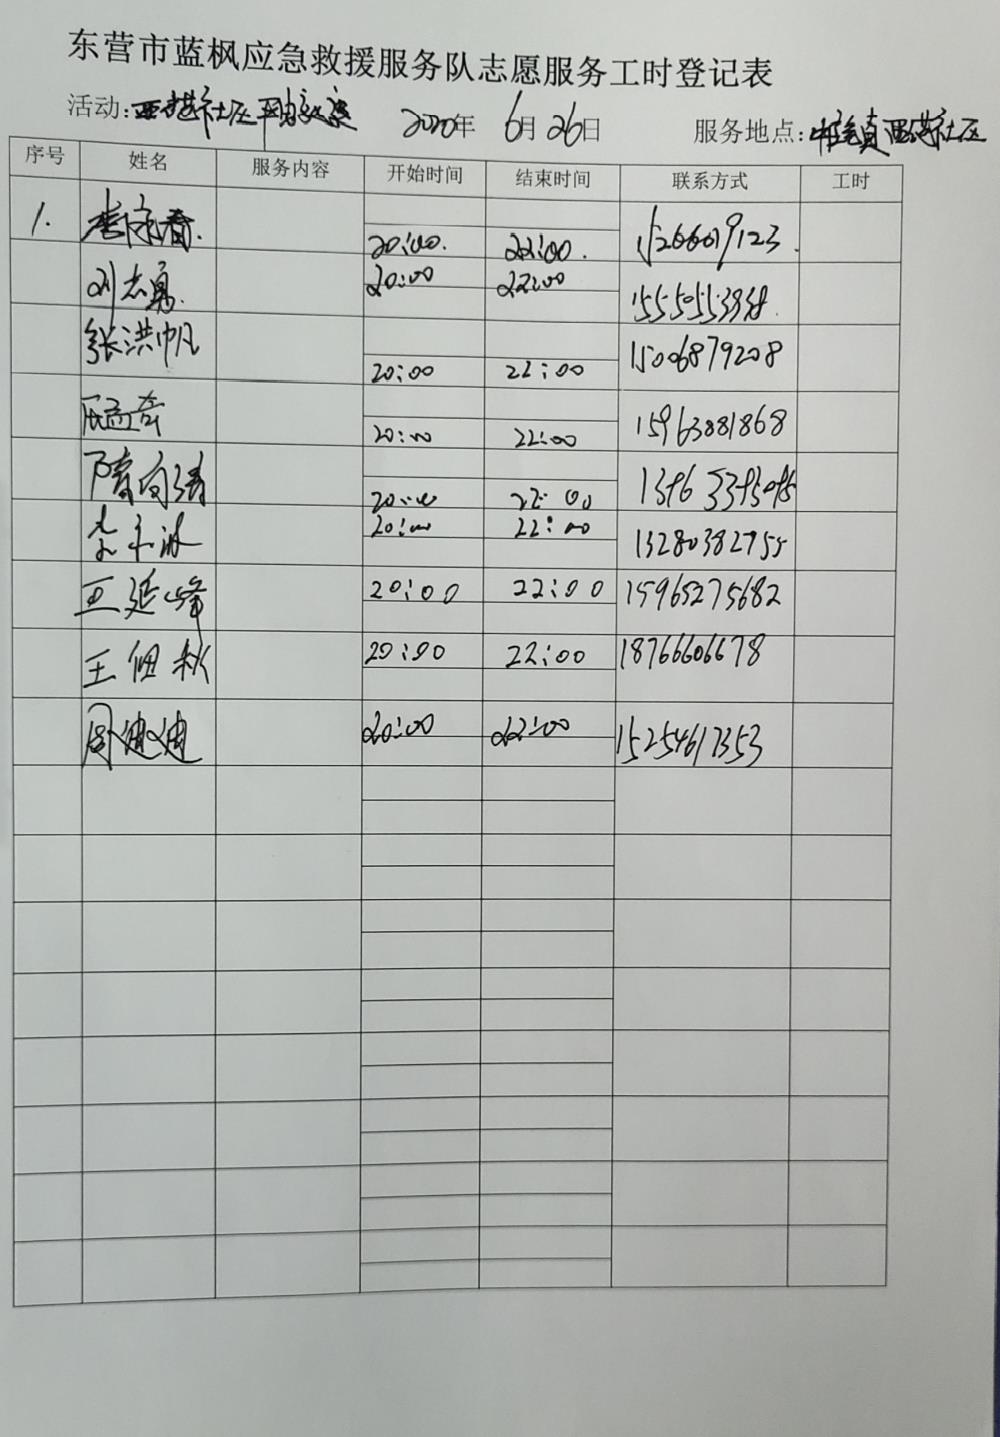 东营市蓝枫应急救援服务队志愿服务工时登记表
活动: 社区 2020年 6月 26日 服务地点: 社区
序号 姓名 服务内容 开始时间 结束时间 联系方式 工时
1. 李咏春. 20:00. 22:00.
刘志勇. 20:00 22:00
张洪帅 20:00 22:00 15006879208
20:00 22:00 15963881868
隋向涛 20:00 22:00
20:00 22:00 13280382755
王延峰 20:00 22:00 15965275682
王佃秋 20:00 22:00 18766606678
周迪迪 20:00 22:00 15254617353